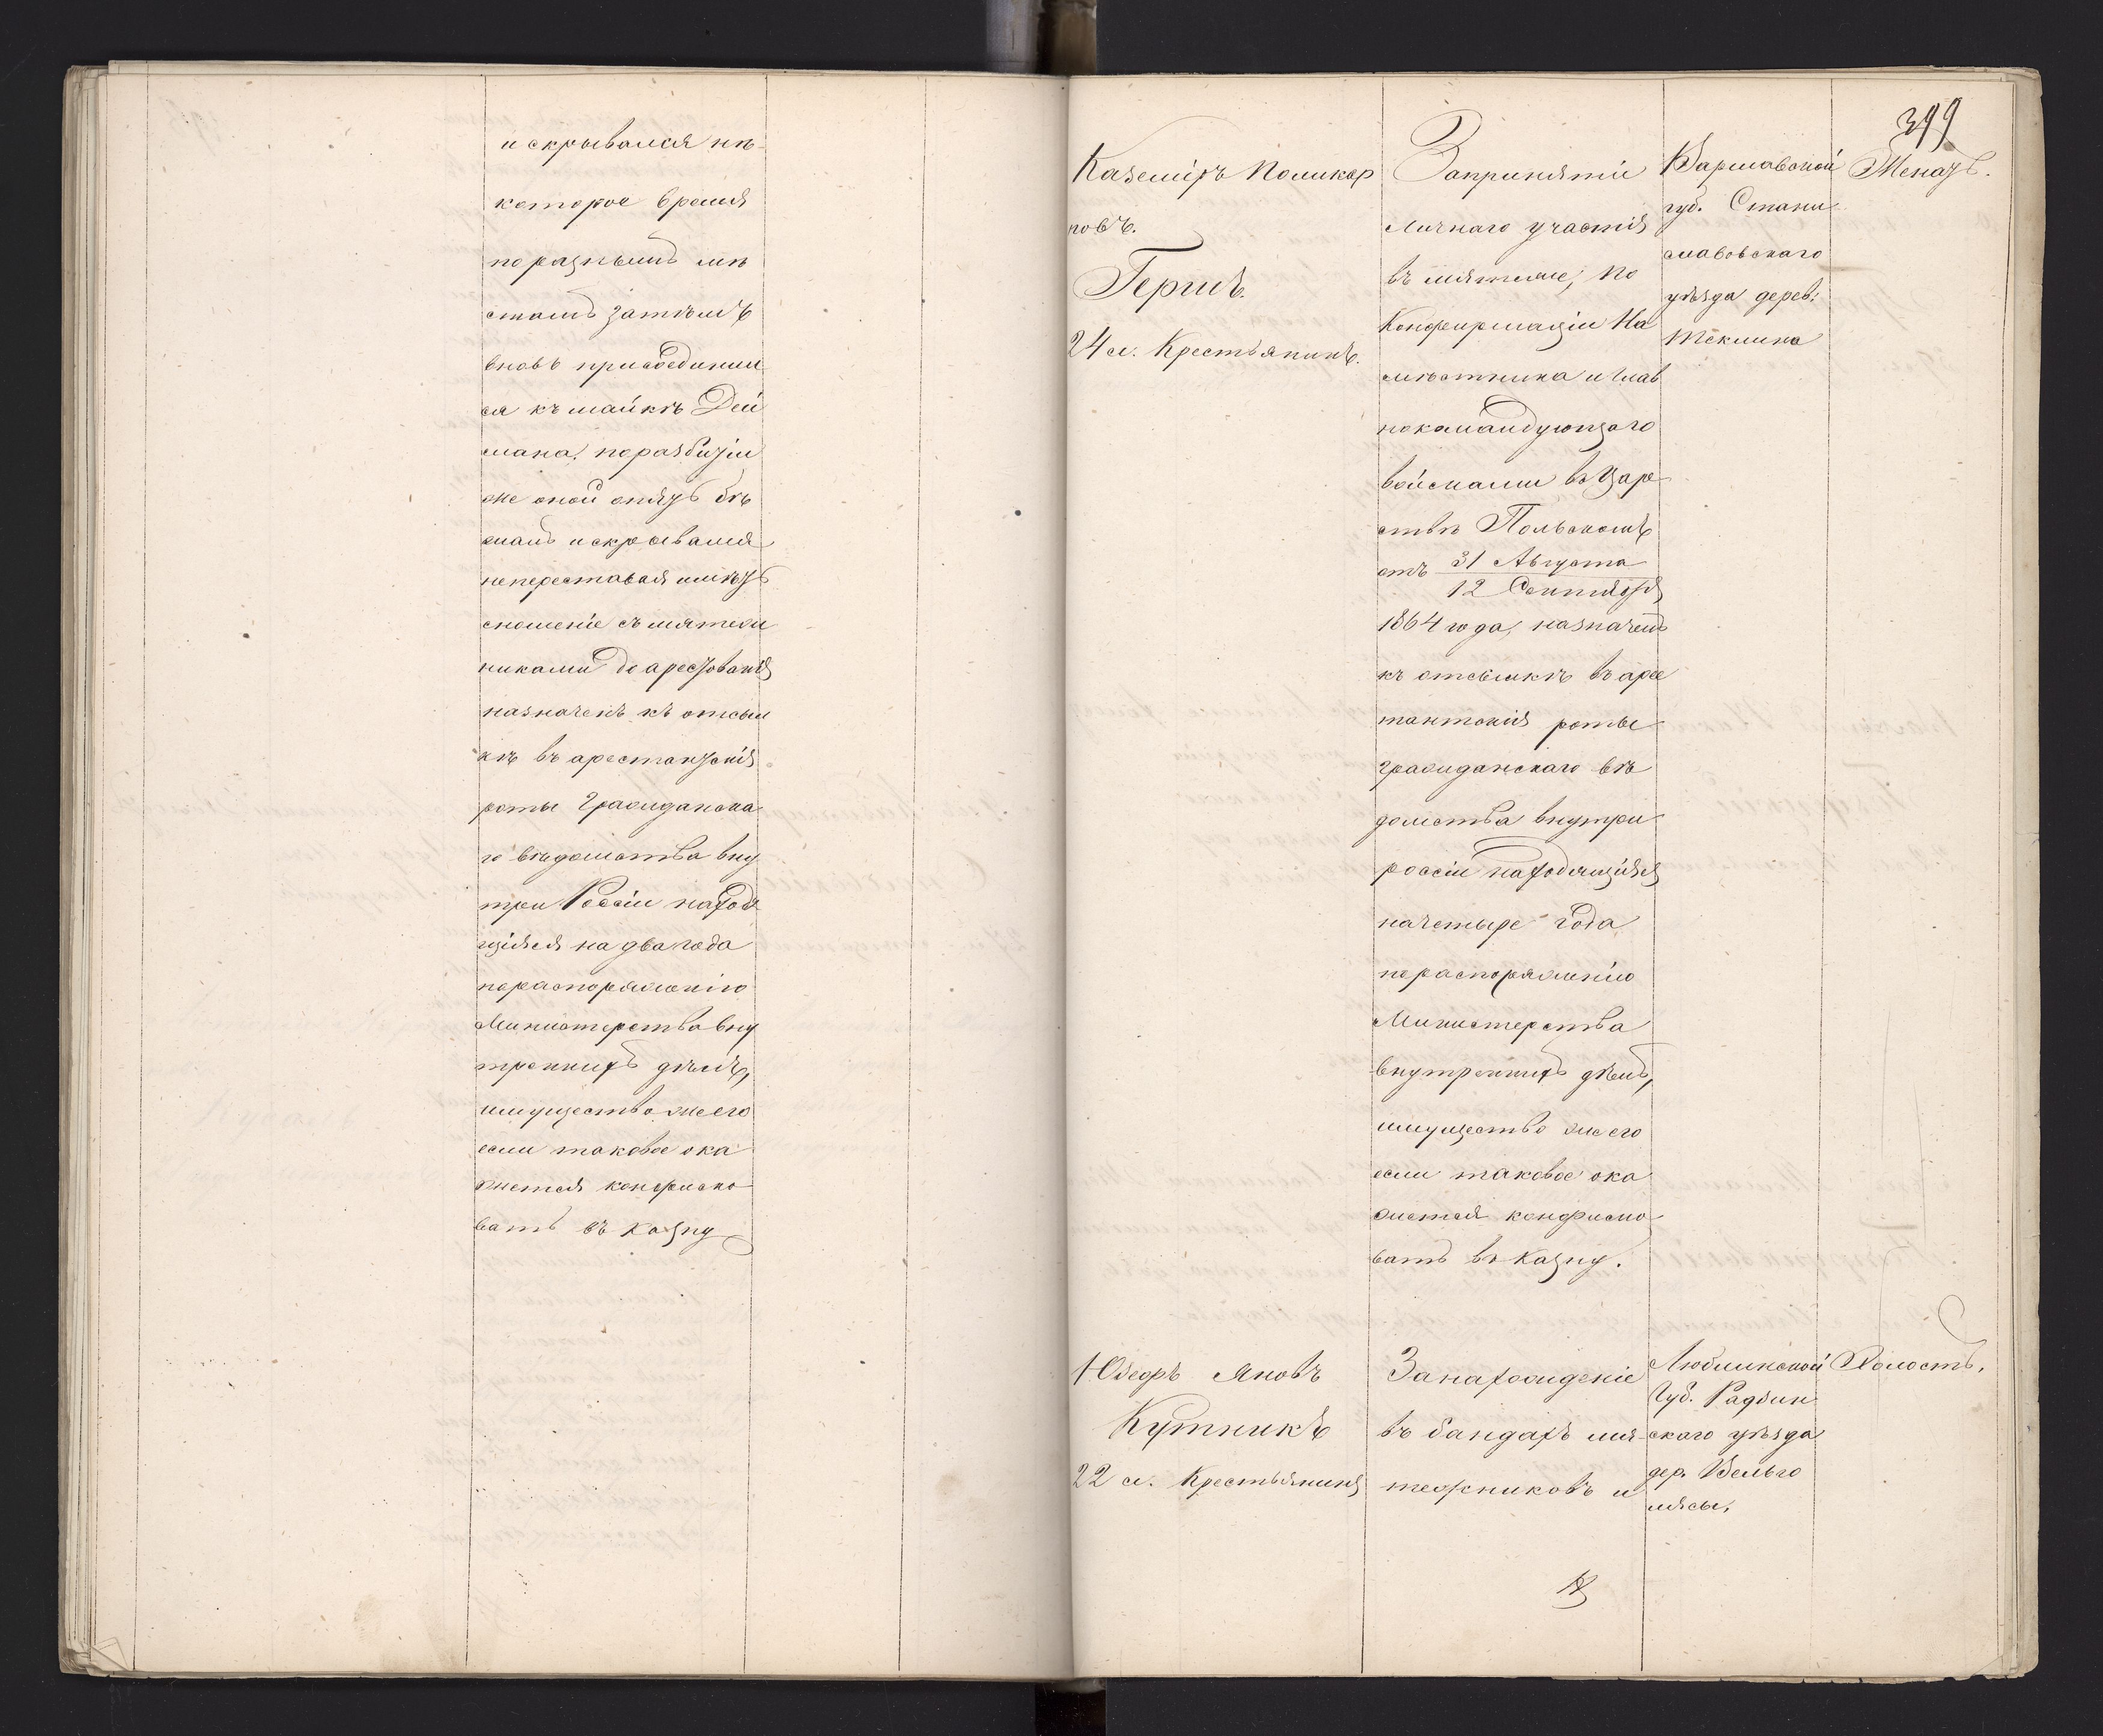 и скрывался нѣ
которое время
по разнымъ мѣ
стамъ затѣмъ
вновь присоединил
ся къ шайкѣ Дей
мана, по разбитіи
же оной опять бѣ
жалъ и скрывался
не переставая имѣть
сношеніе съ мятеж
никами до арестованія
назначенъ къ отсыл
кѣ въ арестантскія
роты гражданска
го вѣдомства вну
три Россіи находя
щіяся на два года
по распоряженію
Министерства вну
треннихъ дѣлъ,
имущество же его
если таковое ока
жется конфиско
вать въ казну
399
Каземіръ Поликар
повъ.
Гершъ.
24 л. Крестьянинъ.
За принятіе
личнаго участія
въ мятеже, по
Конфирмаціи На
мѣстника и Глав
нокомандующаго
войсками въ Цар
ствѣ Польскомъ
отъ 31 Августа
12 Сентября
1864 года, назначенъ
къ отсылкѣ въ арес
тантскія роты
гражданскаго вѣ
домства внутри
россіи находящіяся
на четыре года
по распоряженію
Министерства
внутреннихъ дѣлъ,
имущество же его
если таковое ока
жется конфиско
вать въ казну.
Варшавской
губ. Стани
славовскаго
уѣзда дерев:
Теклина
Женатъ.
Юзефъ Яновъ
Кутникъ
22 л. Крестьянинъ
За нахожденіе
въ бандахъ мя
тежниковъ и
Люблинской
Губ. Радзин
скаго уѣзда
дер. Вельго
лясы.
Холостъ.